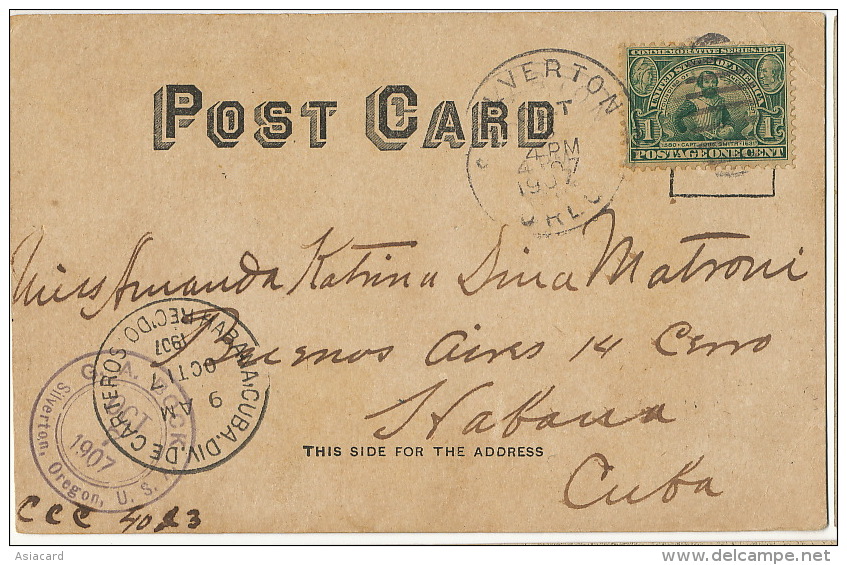 POST CARD
SILVERTON
4 PM
1907
OREG
COMMEMORATIVE SERIES, 1907
UNITED STATES OF AMERICA
1580 · CAPT. JOHN SMITH · 1631
1 POSTAGE ONE CENT 1
Miss Amanda Katrina Dina Matroni
Buenos Aires 14 Cerro
Habana
Cuba
HABANA, CUBA. DIV. DE CARTEROS
REC'DO
1907
OCT 17
9 AM
OCT
1907
Silverton, Oregon, U. S.
THIS SIDE FOR THE ADDRESS
CCC 4023
Asiacard
delcampe.net